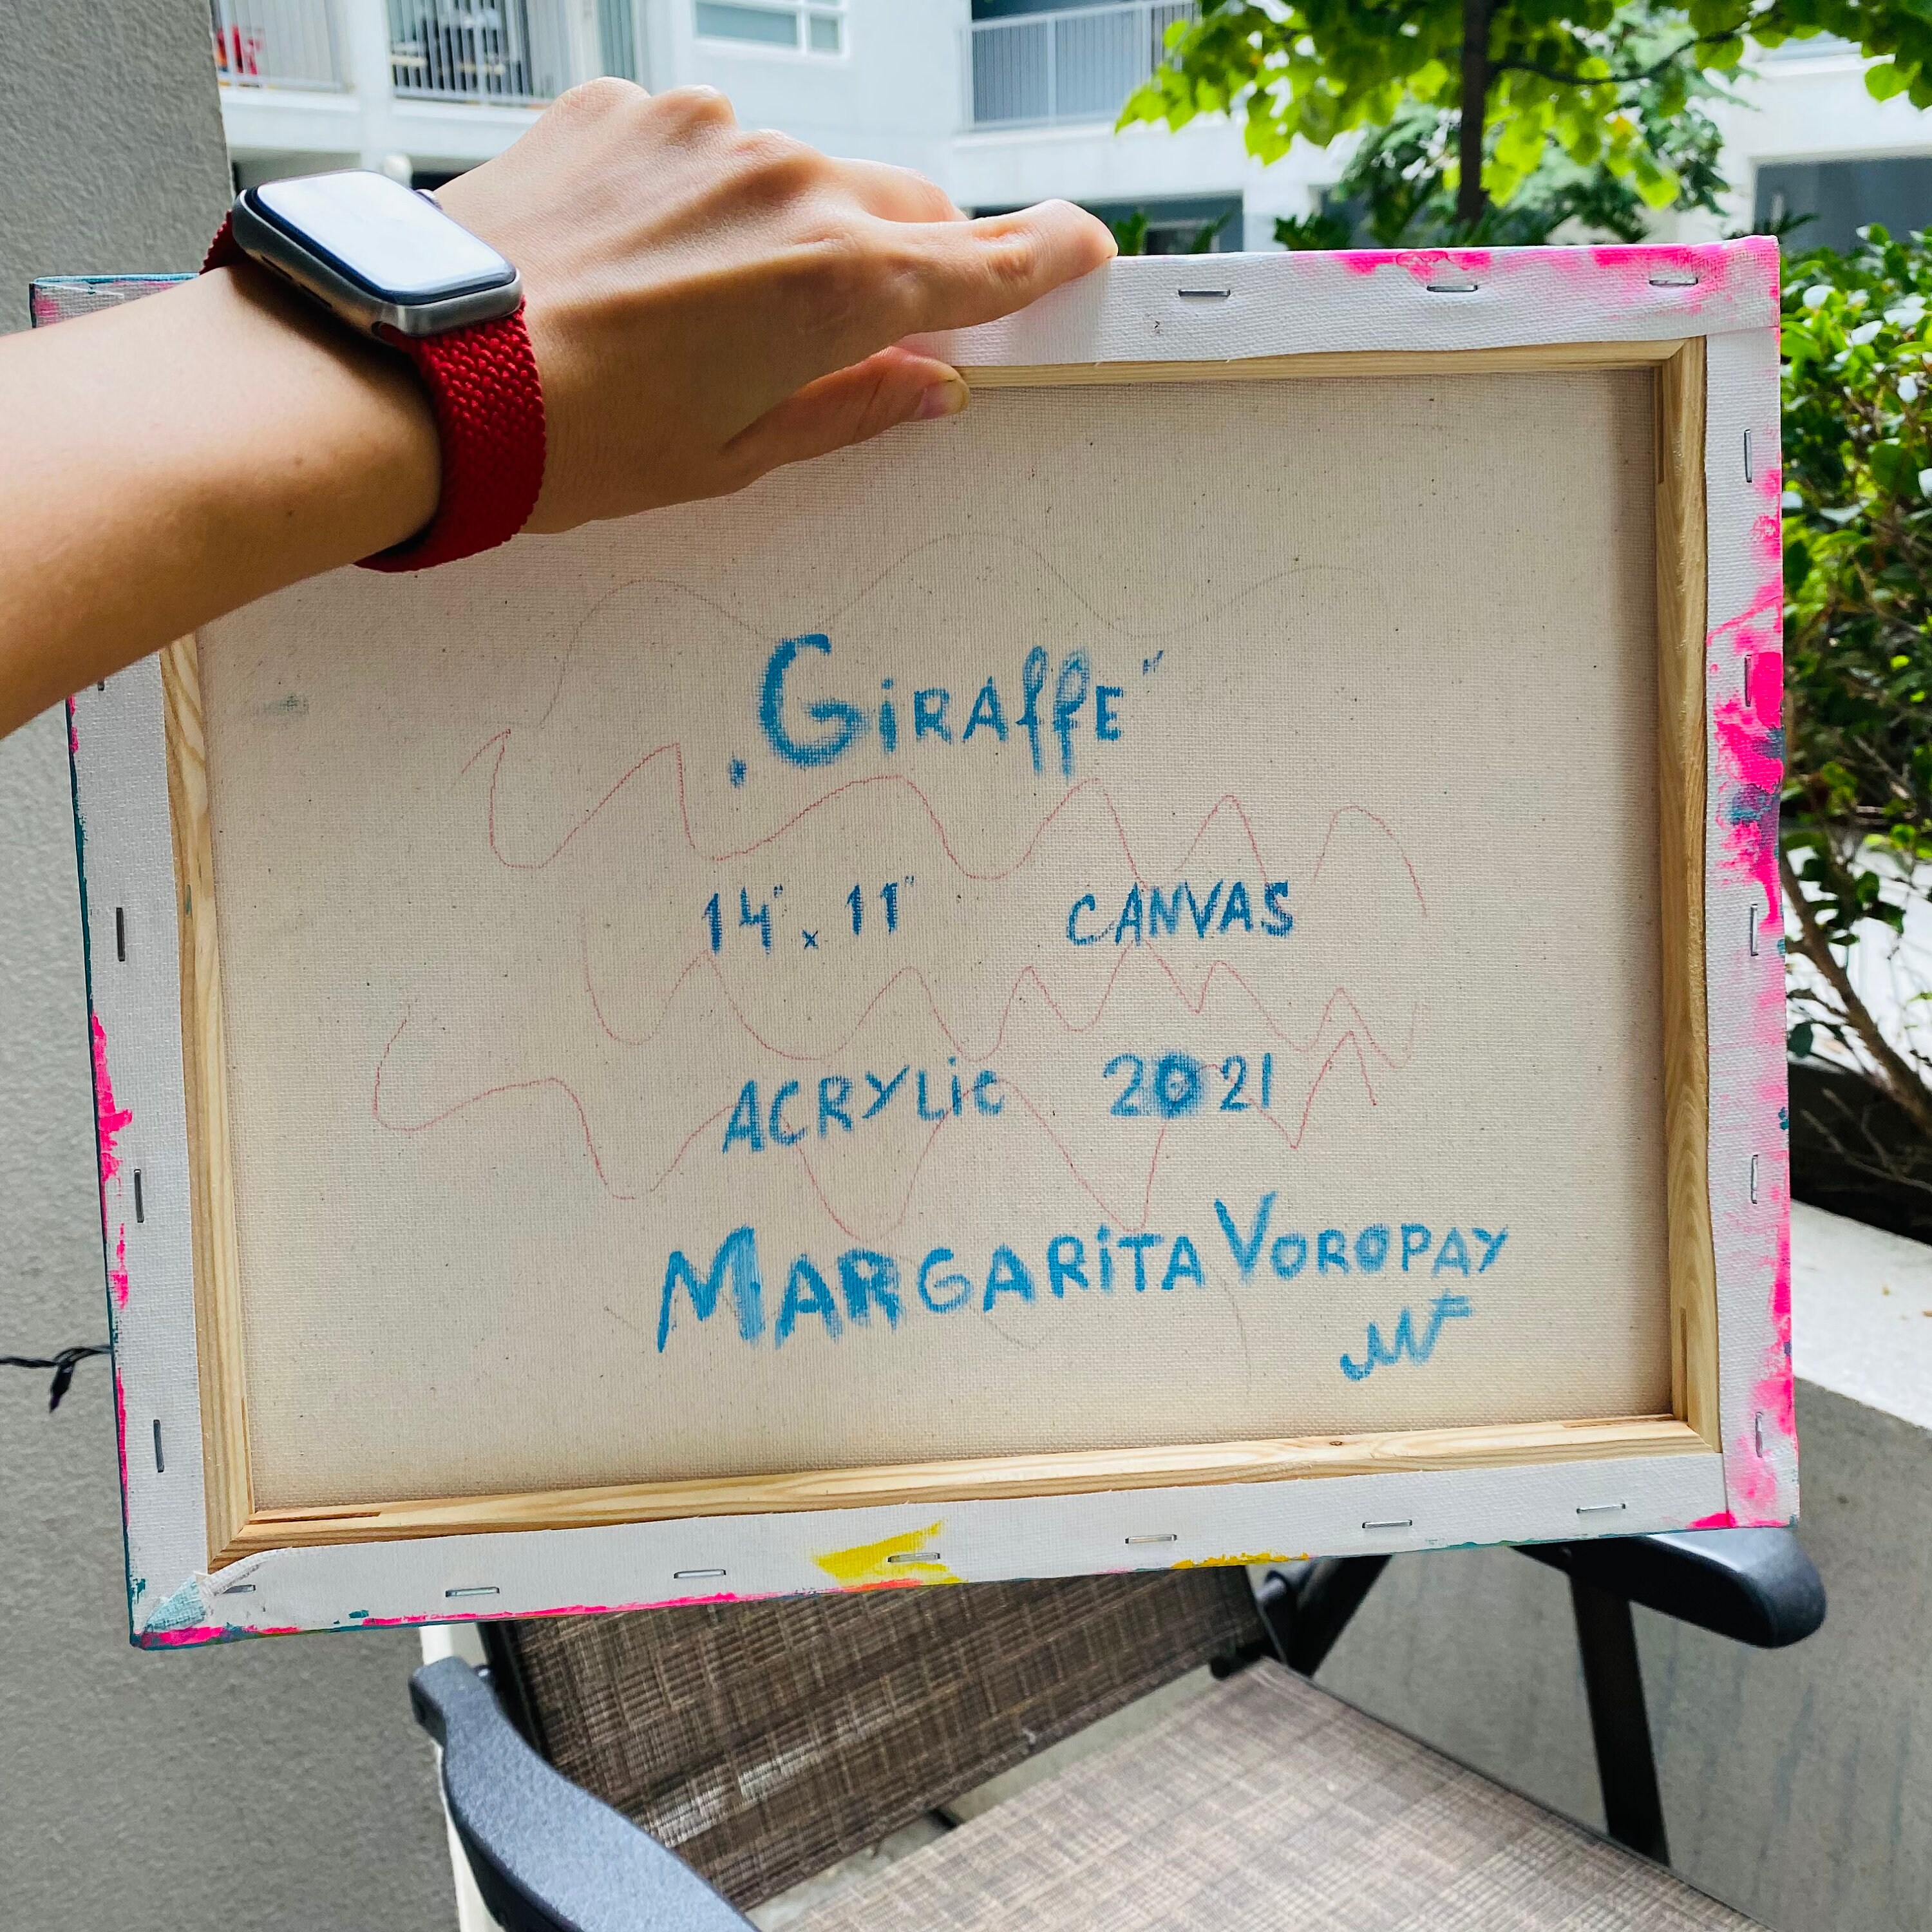 „Giraffe"
14" x 11" CANVAS
ACRYLic 2021
MARGARiTA VOROPAY